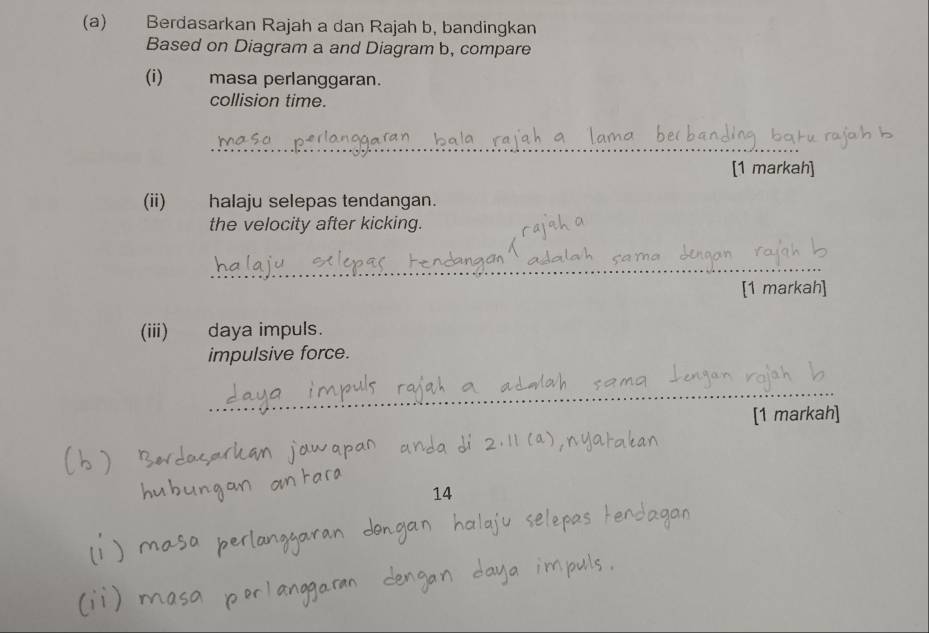 (a) Berdasarkan Rajah a dan Rajah b, bandingkan
Based on Diagram a and Diagram b, compare
(i) masa perlanggaran.
collision time.
masa perlanggaran bala rajah a lama berbanding batu rajah b
[1 markah]
(ii) halaju selepas tendangan.
the velocity after kicking.
rajah a
halaju selepas tendangan adalah sama dengan rajah b
[1 markah]
(iii) daya impuls.
impulsive force.
daya impuls rajah a adalah sama dengan rajah b
[1 markah]
(b) Berdasarkan jawapan anda di 2.11 (a), nyatakan
hubungan antara
14
(i) masa perlanggaran dengan halaju selepas tendagan
(ii) masa perlanggaran dengan daya impuls.